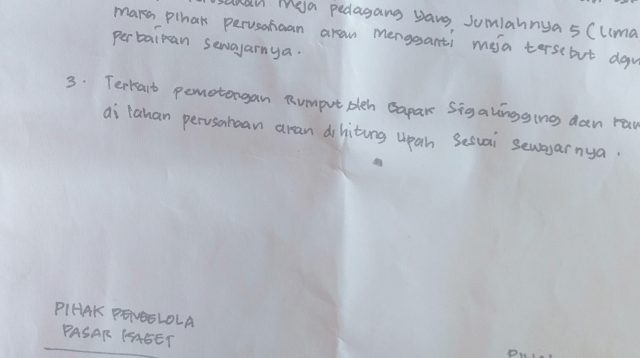 meja pedagang yang Jumlahnya 5 (lima
maka pihak perusahaan akan mengganti meja tersebut dgn
perbaikan sewajarnya.
3. Terkait pemotongan Rumput oleh Bapak Sigalingging dan
di lahan perusahaan akan di hitung upah sesuai sewajarnya.
PIHAK PENGELOLA
PASAR KAGET